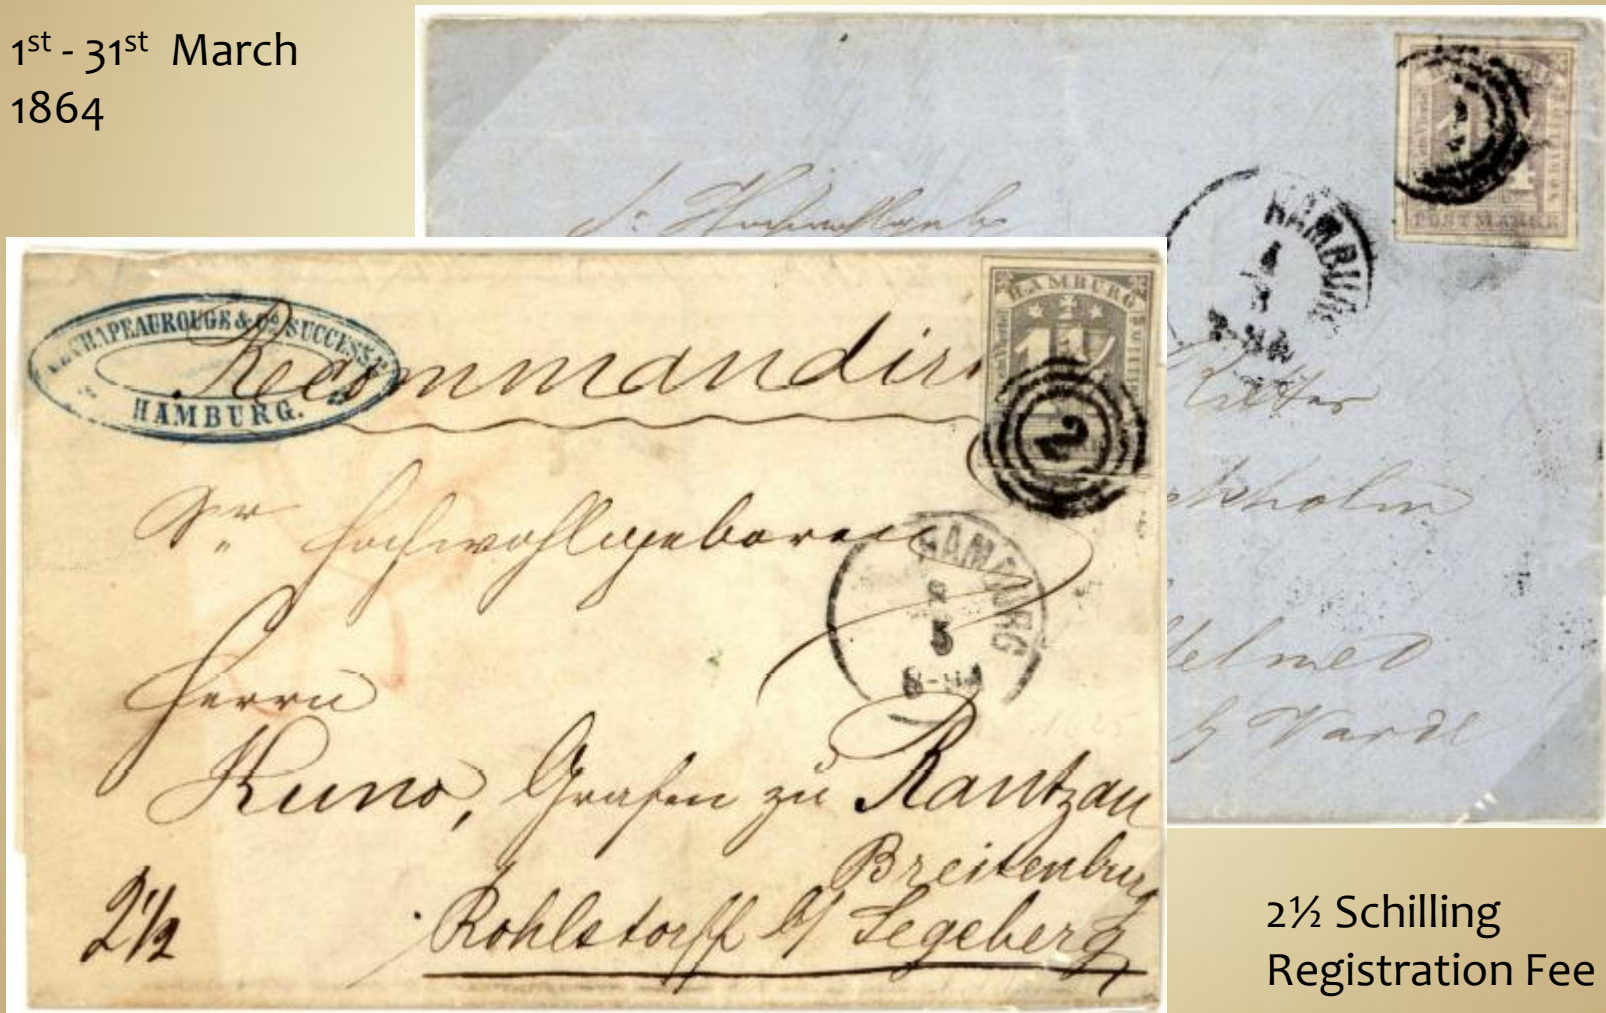 1st - 31st March
1864
HAMBURG
POSTMARKE
Ritter
Varde
CHAPEAUROUGE & Co. SUCCESS
HAMBURG.
Recommandirt
HAMBURG
1¼
2
Sr. Hochwohlgeboren
HAMBURG
Herrn
Kuno, Grafen zu Rantzau
Breitenburg
2½
Rohlstorff b/ Segeberg
2½ Schilling
Registration Fee